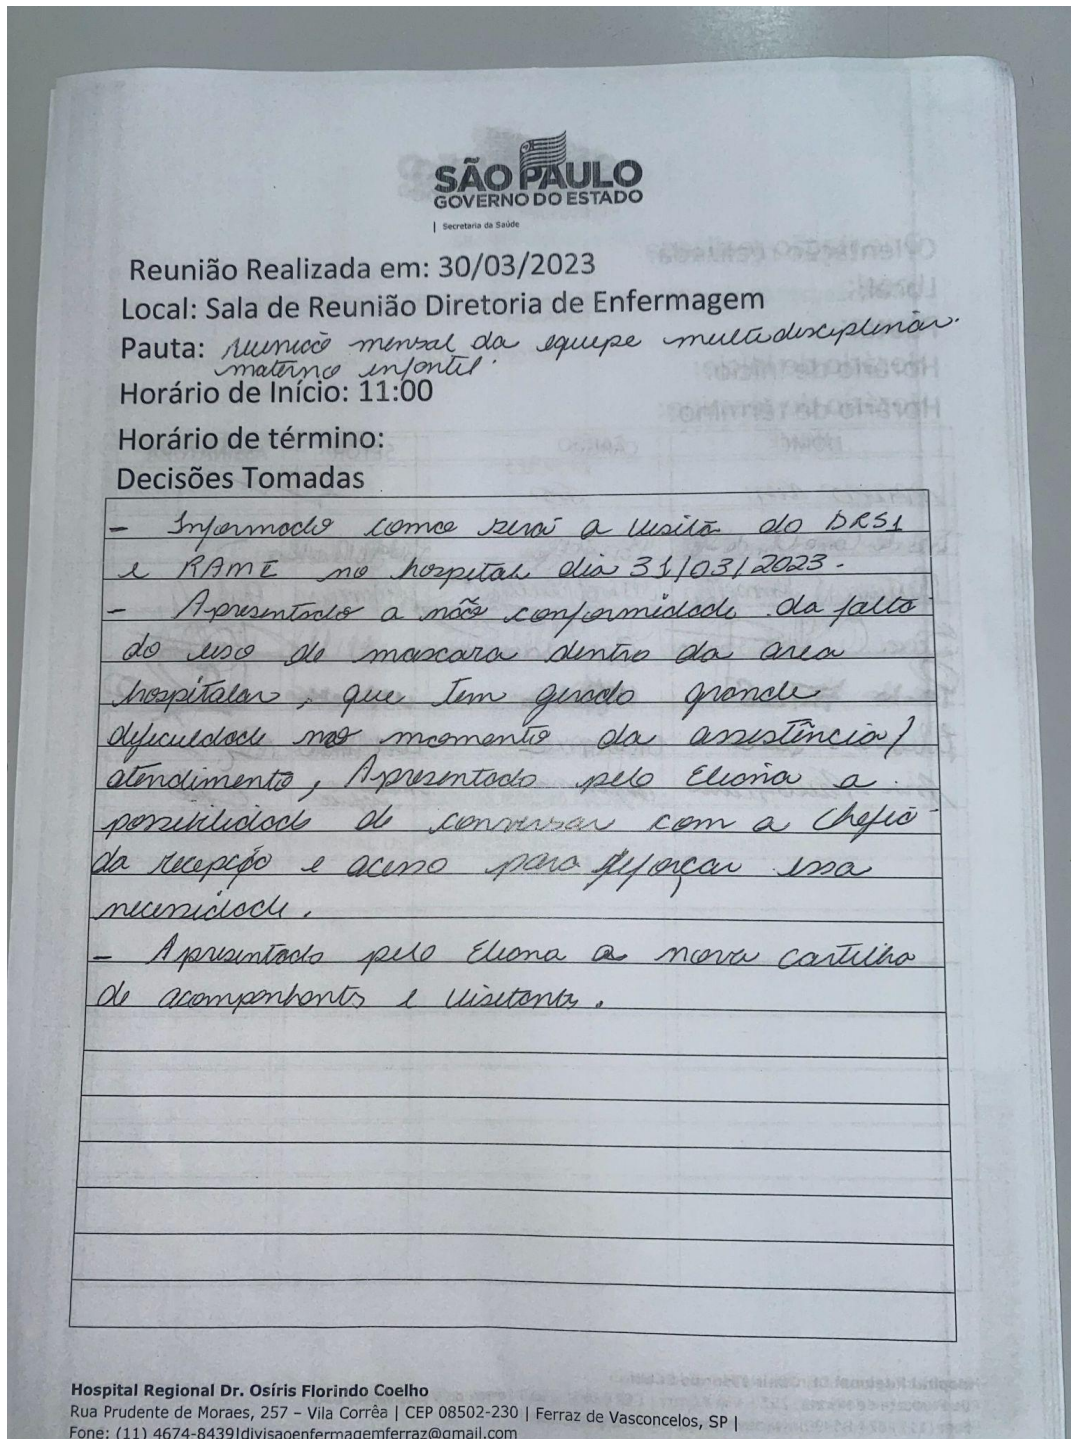 SÃO PAULO
GOVERNO DO ESTADO
Secretaria da Saúde
Reunião Realizada em: 30/03/2023
Local: Sala de Reunião Diretoria de Enfermagem
Pauta: reunião mensal da equipe multidisciplinar
materno infantil.
Horário de Início: 11:00
Horário de término:
Decisões Tomadas
- Informado como será a visita do DRS1
e RAME no hospital dia 31/03/2023.
- Apresentado a não conformidade da falta
do uso de mascara dentro da area
hospitalar, que tem gerado grande
dificuldade no momento da assistência/
atendimento, Apresentado pela Eliana a
possibilidade de conversar com a chefia
da recepção e acesso para reforçar essa
necessidade.
- Apresentado pela Eliana a nova cartilha
de acompanhants e visitants.
Hospital Regional Dr. Osíris Florindo Coelho
Rua Prudente de Moraes, 257 – Vila Corrêa | CEP 08502-230 | Ferraz de Vasconcelos, SP |
Fone: (11) 4674-8439|divisaoenfermagemferraz@gmail.com